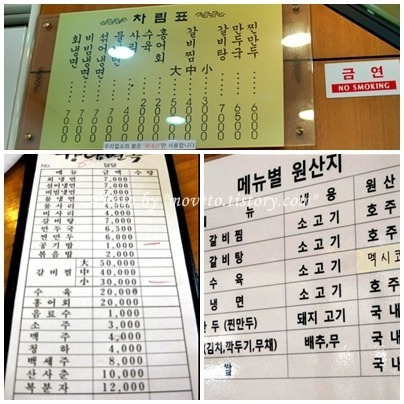 차림표
찐만두
만두국
갈비탕
갈비찜
대 中 小
홍어회
수육
사리
물냉면
섞어냉면
비빔냉면
회냉면
금연
NO SMOKING
No.
담당
메뉴 금액 수량
회냉면 7,000
섞어냉면 7,000
비빔냉면 7,000
물냉면 7,000
물사리 4,500
비사리 4,000
갈비탕 7,000
만두국 6,500
찐만두 6,000
공기밥 1,000
볶음밥 2,000
갈비찜 大 50,000
中 40,000
小 30,000
수육 20,000
홍어회 20,000
음료수 1,000
소주 3,000
맥주 4,000
청하 4,000
백세주 8,000
산사춘 10,000
복분자 12,000
by "moveto.tistory.com"
메뉴별 원산지
메뉴 내용 원산
갈비찜 소고기 호주
갈비탕 소고기 멕시코
수육 소고기 호주
냉면 소고기 호주
만두 (찐만두) 돼지고기 국내
(김치,깍두기,무채) 배추,무 국내
쌀 국내